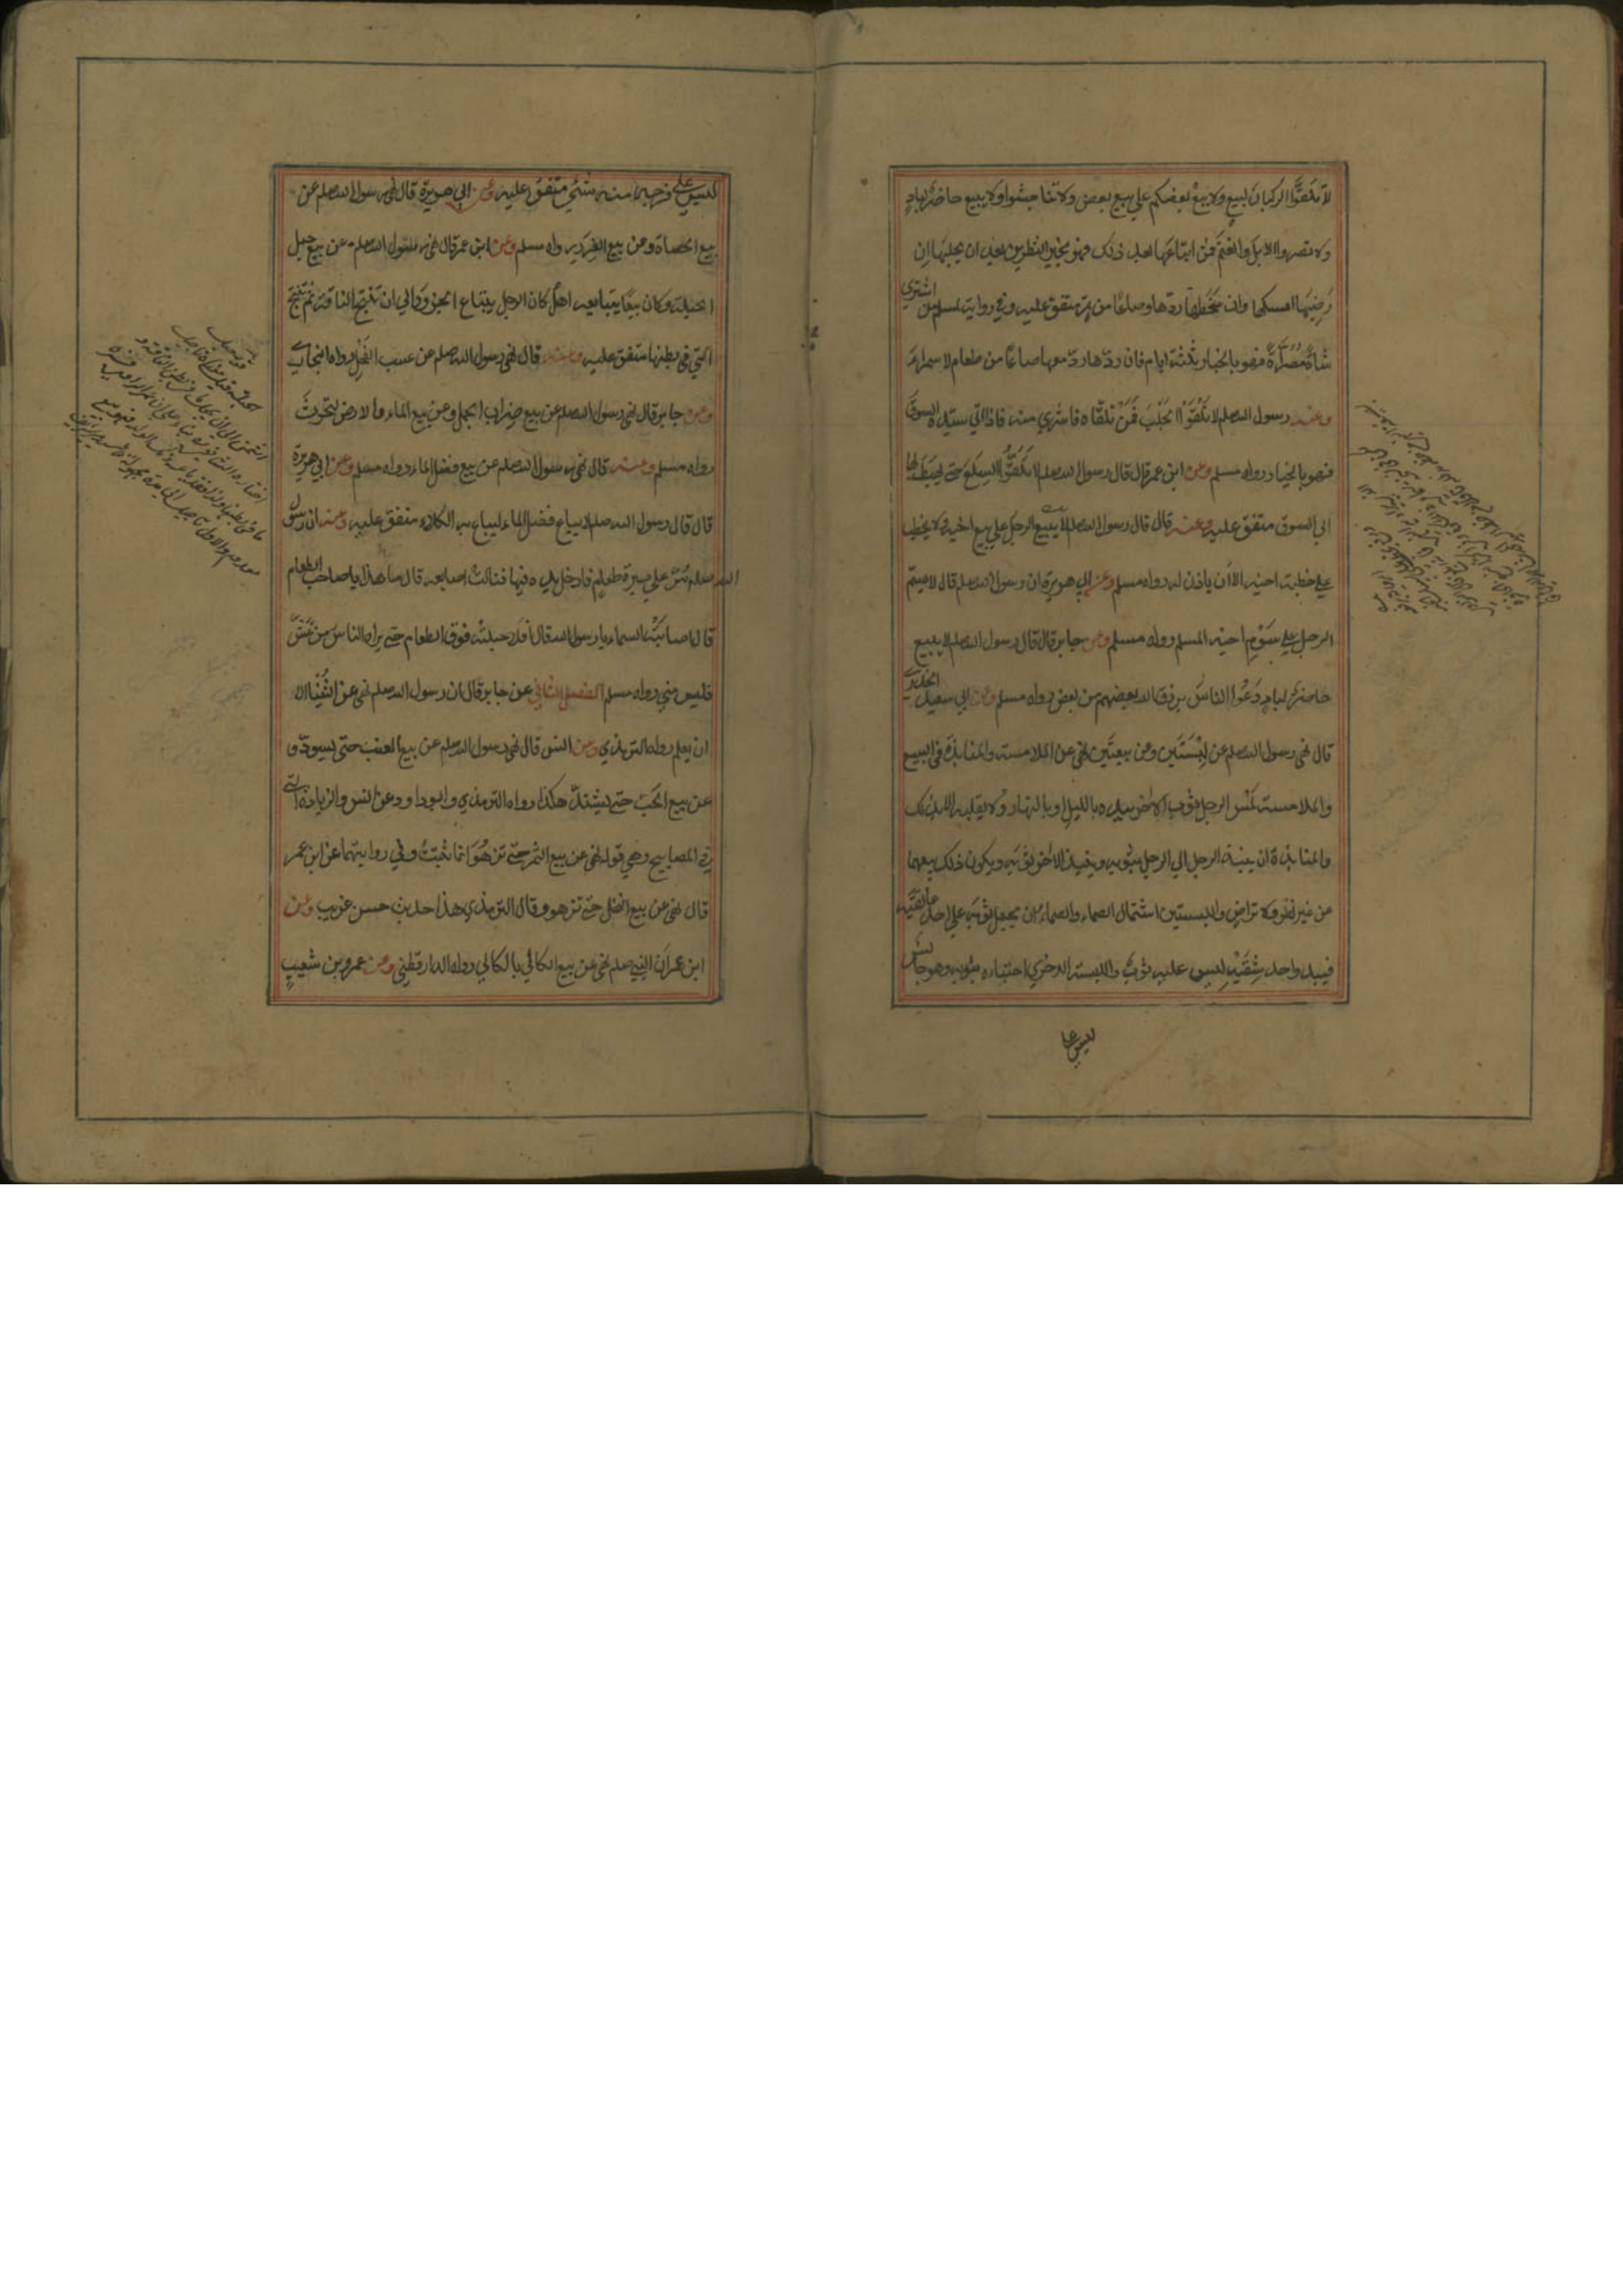 لا تلقوا الركبان لبيع ولا يبع بعضكم علي بيع بعض ولا تناجشوا ولا يبيع حاضر لبادٍ
ولا تصروا الابل والغنم فمن ابتاعها بعد ذلك فهو بخير النظرين بعد ان يحلبها ان
رضيها امسكها وان سخطها ردها وصاعًا من تمر متفق عليه وفي رواية لمسلم من اشتري
شاة مصراة فهو بالخيار ثلثة ايام فان ردها رد معها صاعًا من طعام لا سمراء
وعنه رسول الله صلعم لا تلقوا الجلب فمن تلقاه فاشتري منه فاذا اتي سيده السوق
فهو بالخيار رواه مسلم وعن ابن عمر قال قال رسول الله صلعم لا تلقوا السلع حتي يهبط بها
الي السوق متفق عليه وعنه قال قال رسول الله صلعم لا يبيع الرجل علي بيع اخيه ولا يخطب
علي خطبة اخيه الا ان ياذن له رواه مسلم وعن ابي هريرة ان رسول الله صلعم قال لا يسم
الرجل علي سوم اخيه المسلم رواه مسلم وعن جابر قال قال رسول الله صلعم لا يبيع
حاضر لبادٍ دعوا الناس يرزق الله بعضهم من بعض رواه مسلم وعن ابي سعيد الخدري
قال نهي رسول الله صلعم عن لبستين وعن بيعتين نهي عن الملامسة والمنابذة في البيع
والملامسة لمس الرجل ثوب الاخر بيده بالليل او بالنهار ولا يقلبه الا بذلك
والمنابذة ان ينبذ الرجل الي الرجل بثوبه وينبذ الاخر ثوبه ويكون ذلك بيعهما
عن غير نظر ولا تراض واللبستين اشتمال الصماء والصماء ان يجعل ثوبه علي احد عاتقيه
فيبدو احد شقيه ليس عليه ثوب واللبسة الاخري احتباءه بثوبه وهو جالس
ليس علي
ليس علي فرجه منه شئ متفق عليه وعن ابي هريرة قال نهي رسول الله صلعم عن
بيع الحصاة وعن بيع الغرر رواه مسلم وعن ابن عمر قال نهي رسول الله صلعم عن بيع حبل
الحبلة وكان بيعًا يتبايعه اهل كان الرجل يبتاع الجزور الي ان تنتج الناقة ثم تنتج
التي في بطنها متفق عليه وعنه قال نهي رسول الله صلعم عن عسب الفحل رواه البخاري
وعن جابر قال نهي رسول الله صلعم عن بيع ضراب الجمل وعن بيع الماء والارض لتحرث
رواه مسلم وعنه قال نهي رسول الله صلعم عن بيع فضل الماء رواه مسلم وعن ابي هريرة
قال قال رسول الله صلعم لا يباع فضل الماء ليباع به الكلاء متفق عليه وعنه ان رسول
الله صلعم مر علي صبرة طعام فادخل يده فيها فنالت اصابعه قال ما هذا يا صاحب الطعام
قال اصابته السماء يا رسول الله قال افلا جعلته فوق الطعام حتي يراه الناس من غش
فليس مني رواه مسلم الفصل الثاني عن جابر قال ان رسول الله صلعم نهي عن الثنيا الا
ان يعلم رواه الترمذي وعن انس قال نهي رسول الله صلعم عن بيع العنب حتي يسود و
عن بيع الحب حتي يشتد هكذا رواه الترمذي وابو داود عن انس والزيادة التي
في المصابيح وهي قوله نهي عن بيع التمر حتي تزهو انما ثبتت في روايتهما عن ابن عمر
قال نهي عن بيع النخل حتي تزهو وقال الترمذي هذا حديث حسن غريب وعن
ابن عمر ان النبي صلعم نهي عن بيع الكالي بالكالي رواه الدارقطني وعن عمرو بن شعيب